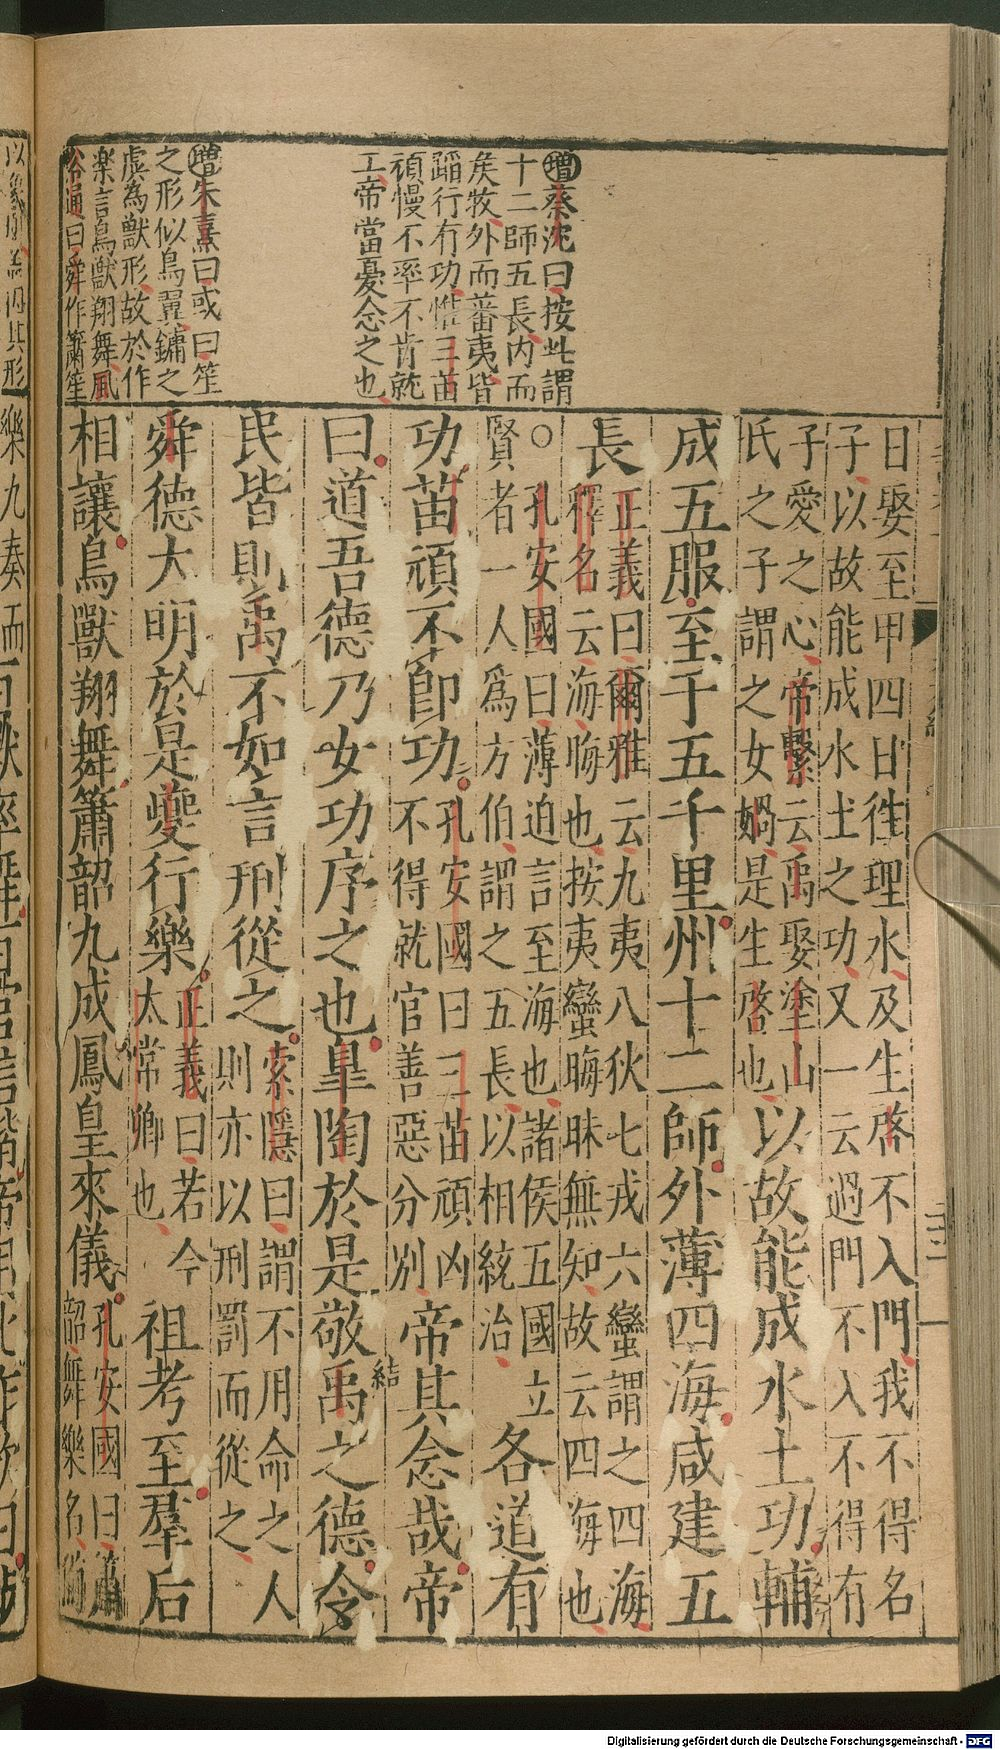 增蔡沈曰按此謂
十二師五長内而
矦牧外而蕃夷皆
蹈行有功惟三苗
頑慢不率不肯就
工帝當憂念之也
增朱熹曰或曰笙
之形似鳥翼鏞之
虡為獸形故於作
樂言鳥獸翔舞風
俗通曰舜作簫笙
日娶至甲四日徃理水及生啓不入門我不得名
子以故能成水土之功又一云過門不入不得有
子愛之心帝繫云禹娶塗山
氏之子謂之女媧是生啓也以故能成水土功輔
成五服至于五千里州十二師外薄四海咸建五
長正義曰爾雅云九夷八狄七戎六蠻謂之四海
釋名云海晦也按夷蠻晦昧無知故云四海也
○孔安國曰薄迫言至海也諸侯五國立
賢者一人爲方伯謂之五長以相統治各道有
功苗頑不即功孔安國曰三苗頑凶
不得就官善惡分別帝其念哉帝
曰道吾德乃女功序之也皐陶於是敬禹之德令
結
民皆則禹不如言刑從之索隱曰謂不用命之人
則亦以刑罰而從之
舜德大明於是夔行樂正義曰若今
太常卿也祖考至羣后
相讓鳥獸翔舞簫韶九成鳳皇來儀孔安國曰簫
韶舜樂名
Digitalisierung gefördert durch die Deutsche Forschungsgemeinschaft - DFG